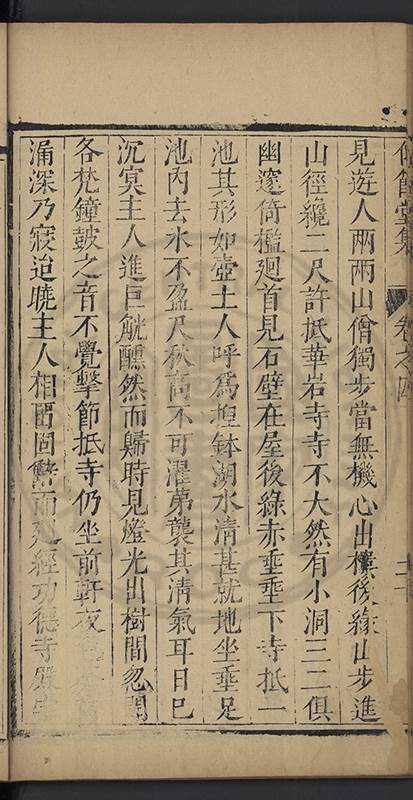 仰節堂集
卷之四
見遊人兩兩山僧獨步當無機心出樓後緣山步進
山徑纔二尺許抵華岩寺寺不大然有小洞三二俱
幽邃倚檻迴首見石壁在屋後綠赤垂垂下寺抵一
池其形如壺土人呼爲捏鉢湖水清甚就地坐垂足
池內去水不盈尺秋高不可濯第襲其清氣耳日已
沉冥主人進巨觥醺然而歸時見燈光出樹間忽聞
各梵鐘鼓之音不覺擊節抵寺仍坐前軒夜
涌深乃寢迨曉主人相留固辭而返經功德寺殿